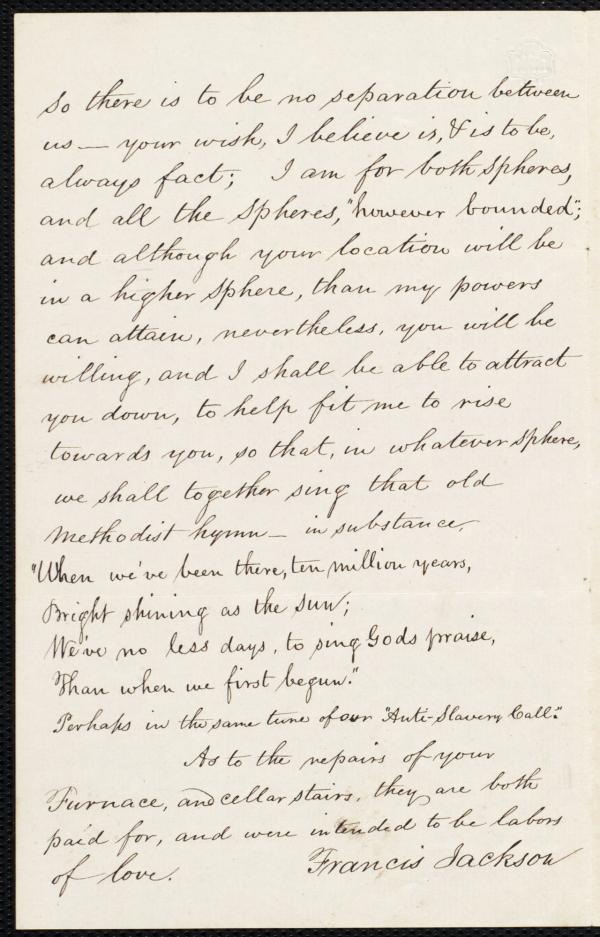 So there is to be no separation between
us — your wish, I believe is, & is to be,
always fact; I am for both Spheres,
and all the Spheres, "however bounded";
and although your location will be
in a higher Sphere, than my powers
can attain, nevertheless, you will be
willing, and I shall be able to attract
you down, to help fit me to rise
towards you, so that, in whatever Sphere,
we shall together sing that old
Methodist hymn — in substance,
"When we've been there, ten million years,
Bright shining as the sun;
We've no less days, to sing Gods praise,
Than when we first begun."
Perhaps in the same tune of our "Anti-Slavery Call."
As to the repairs of your
Furnace, and cellar stairs, they are both
paid for, and were intended to be labors
of love. Francis Jackson